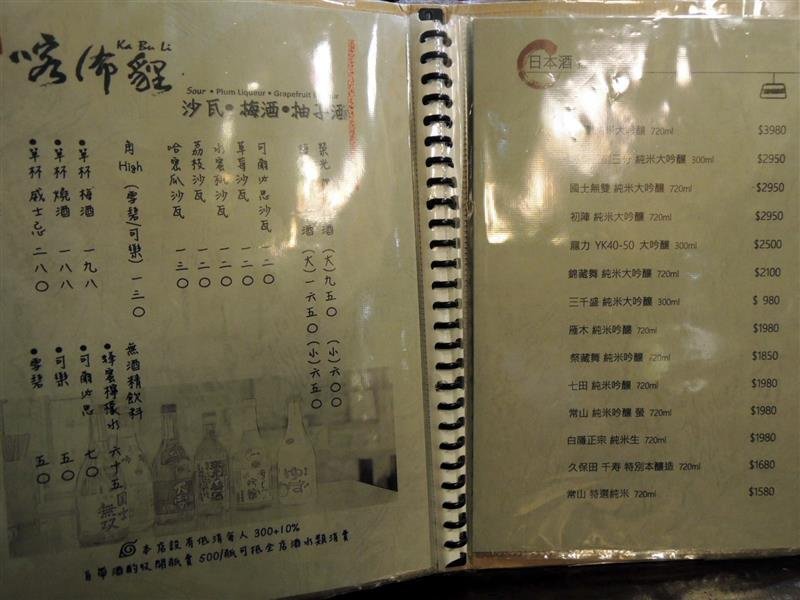 喀佈貍
Ka Bu Li
Sour • Plum Liqueur • Grapefruit
沙瓦•梅酒•柚子酒
酒 (大)九五〇 (小)六〇〇
酒 (大)一六五〇 (小)六五〇
可爾必思沙瓦 一二〇
草莓沙瓦 一二〇
水蜜桃沙瓦 一二〇
荔枝沙瓦 一二〇
哈蜜瓜沙瓦 一三〇
角High (雪碧/可樂) 一三〇
•單杯 梅酒 一九八
•單杯 燒酒 一八八
•單杯 威士忌 二八〇
無酒精飲料
•蜂蜜檸檬水 六十五
•可爾必思 七〇
•可樂 五〇
•雪碧 五〇
本店設有低消每人 300+10%
自帶酒酌收開瓶費 500/瓶可抵全店酒水類消費
日本酒
純米大吟釀 720ml $3980
三分 純米大吟釀 300ml $2950
國士無雙 純米大吟釀 720ml $2950
初陣 純米大吟釀 720ml $2950
龍力 YK40-50 大吟釀 300ml $2500
錦藏舞 純米大吟釀 720ml $2100
三千盛 純米大吟釀 300ml $ 980
雁木 純米吟釀 720ml $1980
祭藏舞 純米吟釀 720ml $1850
七田 純米吟釀 720ml $1980
常山 純米吟釀 螢 720ml $1980
白隱正宗 純米生 720ml $1980
久保田 千寿 特別本釀造 720ml $1680
常山 特選純米 720ml $1580